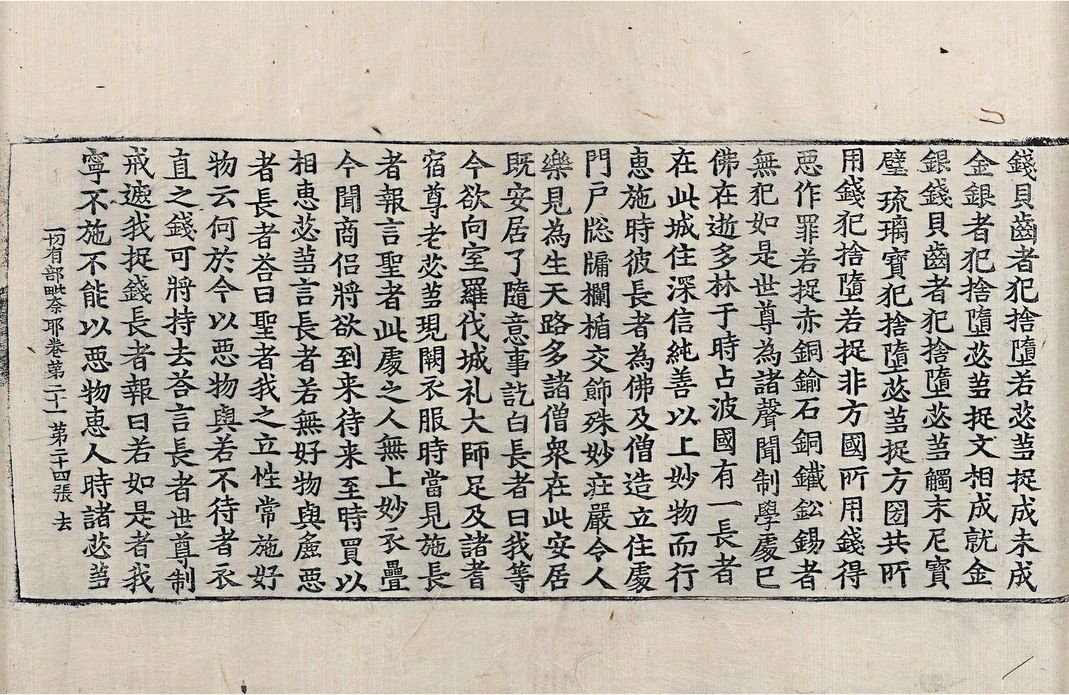 錢貝齒者犯捨墮若苾芻捉成未成
金銀者犯捨墮苾芻捉文相成就金
銀錢貝齒者犯捨墮苾芻觸末尼寶
璧琉璃寶犯捨墮苾芻捉方國共所
用錢犯捨墮若捉非方國所用錢得
惡作罪若捉赤銅鍮石銅鐵鈆錫者
無犯如是世尊為諸聲聞制學處已
佛在逝多林于時占波國有一長者
在此城住深信純善以上妙物而行
惠施時彼長者為佛及僧造立住處
門戶牎牖欄楯交飾殊妙莊嚴令人
樂見為生天路多諸僧眾在此安居
既安居了隨意事訖白長者曰我等
今欲向室羅伐城礼大師足及諸耆
宿尊老苾芻現闕衣服時當見施長
者報言聖者此處之人無上妙衣疊
今聞商侶將欲到来待来至時買以
相惠苾芻言長者若無好物與麁惡
者長者荅曰聖者我之立性常施好
物云何於今以惡物與若不待者衣
直之錢可將持去荅言長者世尊制
戒遮我捉錢長者報曰若如是者我
寧不施不能以惡物惠人時諸苾芻
一切有部毗奈耶卷第二十一 第二十四張 去